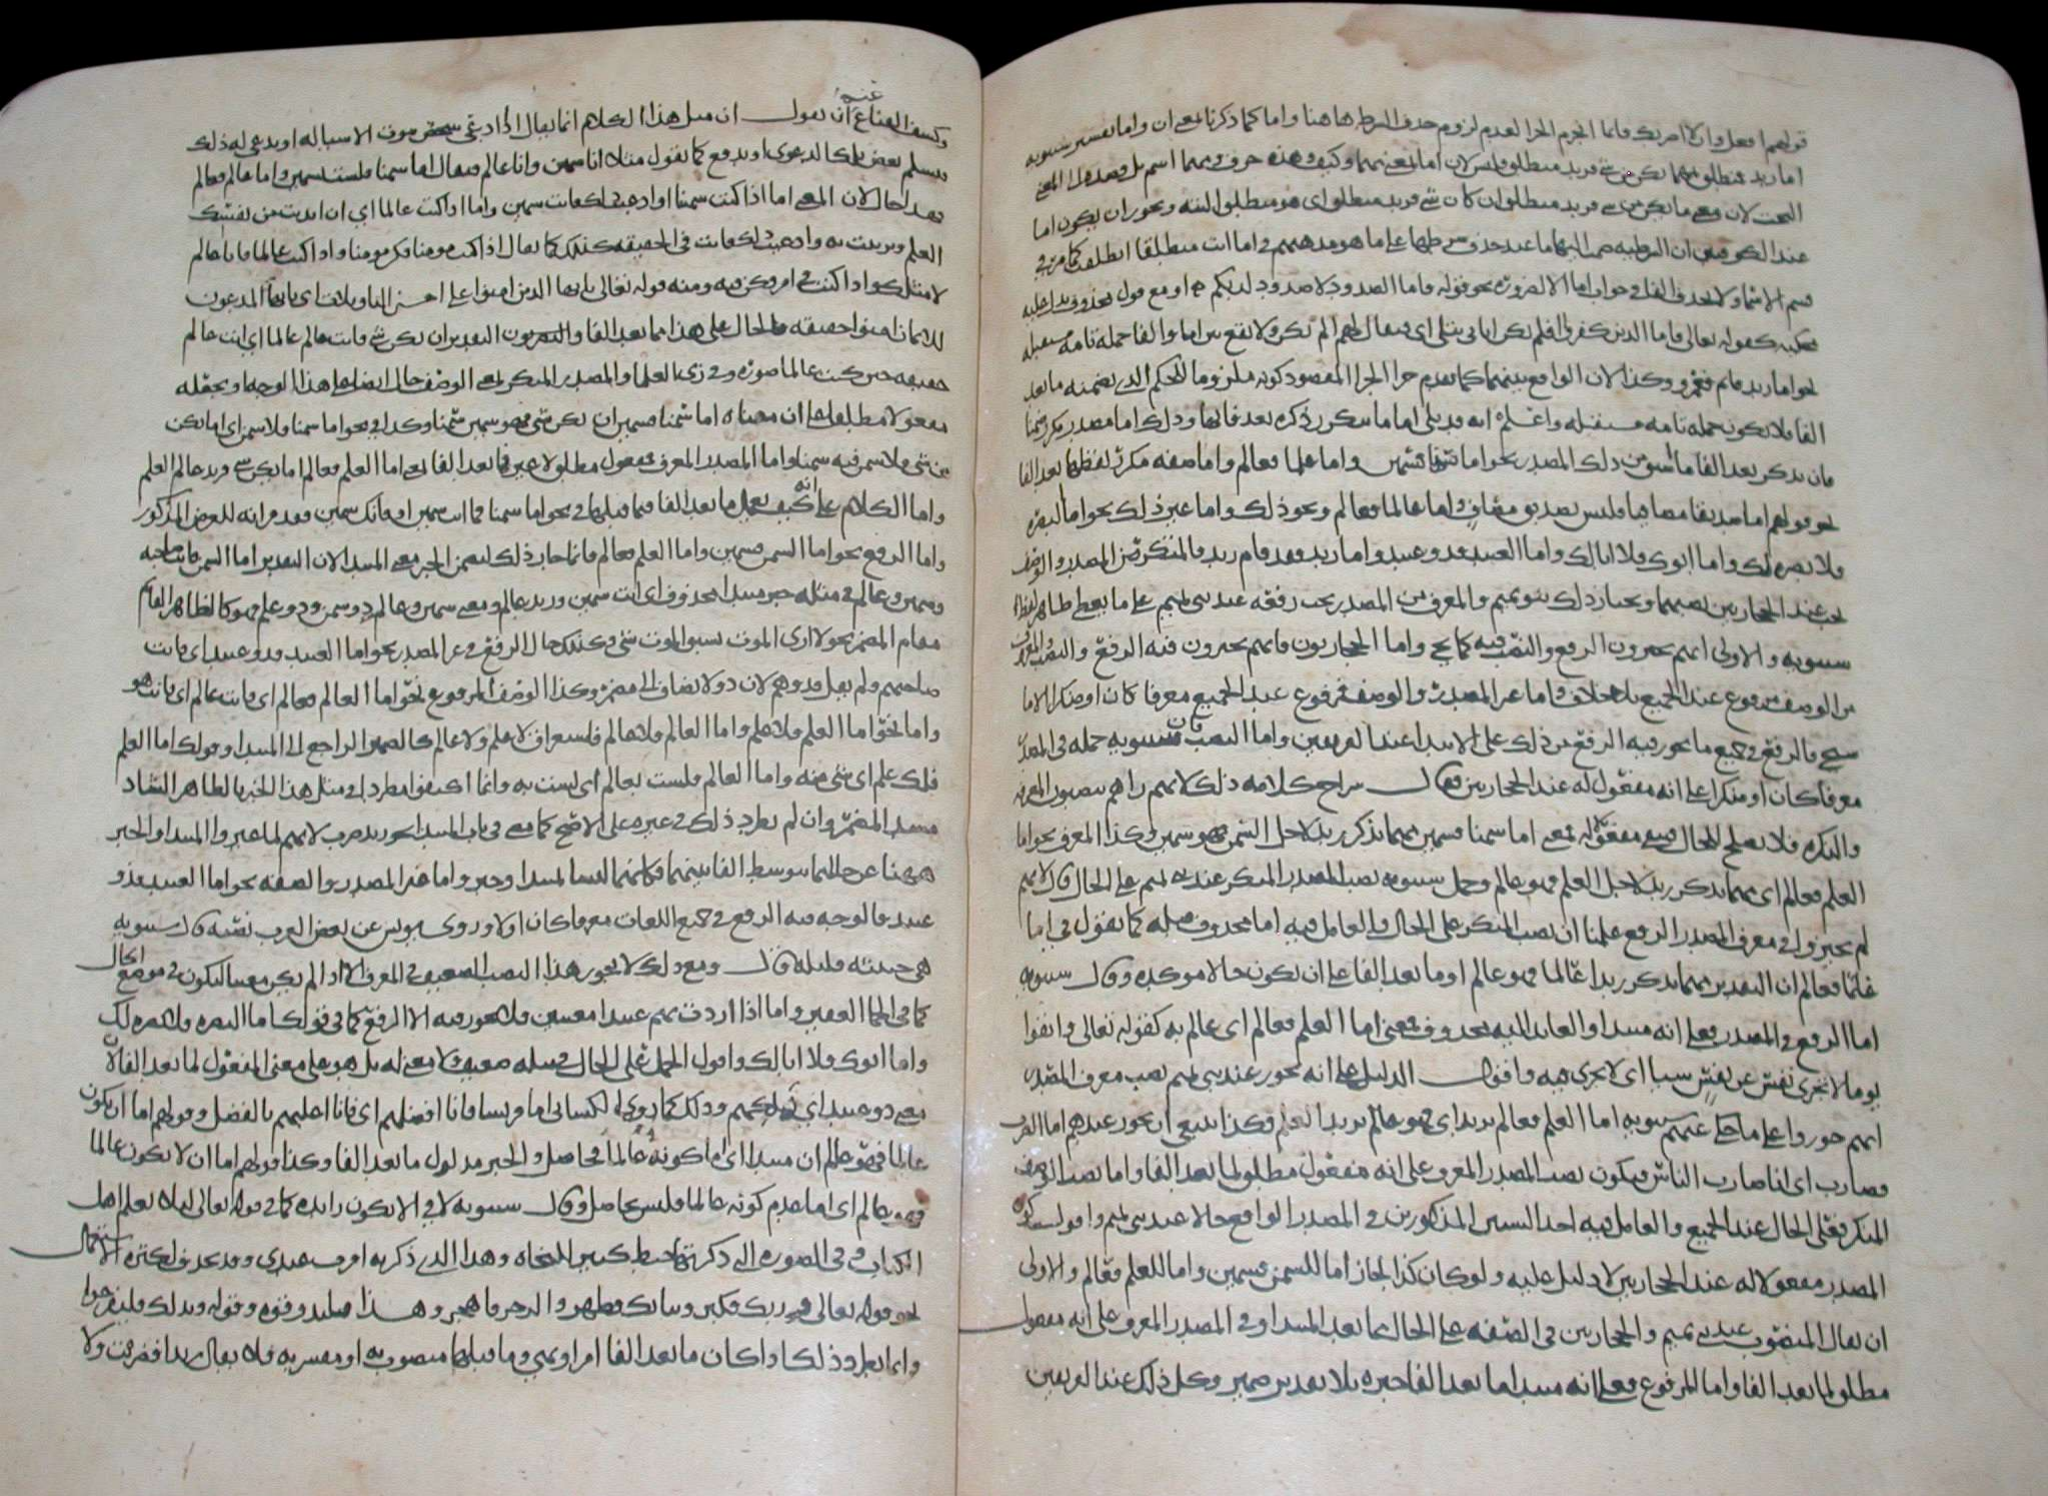 قولهم افعل والا اضربك فانما انجزم الجزا لعدم لزوم حذف الشرط هاهنا واما كما ذكرنا بمعنى ان واما تفسير سيبويه
اما زيد فمنطلق بمهما يكن من شي فزيد منطلق فليس لان اما بمعنى مهما وكيف وهذه حرف ومهما اسم بل قصده الى المعنى
البحت لان معنى مهما يكن من شي فزيد منطلق ان كان شي فزيد منطلق اى هو منطلق البته ويجوز ان يكون اما
عند الكوفيين ان الشرطيه ضمت اليها ما عند حذف شرطها على ما هو مذهبهم في اما انت منطلقا انطلقت كما مر في
قسم الاسما ولا يحذف الفا في جواب اما الا لضرورة نحو قوله فاما الصدود لا صدود لديكم او مع قول محذوف يدل عليه
محكيه كقوله تعالى فاما الذين كفروا افلم تكن اياتى تتلى اى فيقال لهم الم تكن ولا يقع بين اما والفا جملة تامه مستقله
نحو اما زيد قام فعمرو وكذا لان الواقع بينهما كما تقدم جزا الجزا المقصود كونه ملزوما للحكم الذي تضمنه ما بعد
الفا فلا يكون جملة تامه مستقله واعلم انه قد يلى اما ما يتكرر ذكره بعد فائها وذلك اما مصدر مكرر ضمنا
بان يذكر بعد الفا ما اشتق من ذلك المصدر نحو اما سمنا فسمين واما علما فعالم واما صفه مكرر لفظها بعد الفا
نحو قولهم اما صديقا مصافيا فليس بصديق مصاف واما عالما فعالم ونحو ذلك واما غير ذلك نحو اما البصره
فلا بصره لك واما ابوك فلا ابا لك واما العبيد فذو عبيد واما زيد فقد قام زيد فالمنكر من المصدر والوصف
يجب عند الحجازيين نصبهما ويختار ذلك بنو تميم والمعرف من المصدر يجب رفعه عند بنى تميم على ما يعطى ظاهر لفظ
سيبويه والاولى انهم يجيزون الرفع والنصب فيه كما يجي واما الحجازيون فانهم يجيزون فيه الرفع والنصب والمعرف
من الوصف مرفوع عند الجميع بلا خلاف واما غير المصدر والوصف فمرفوع عند الجميع معرفا كان او منكرا الا ما
سيجى فالرفع في جميع ما يجوز فيه الرفع من ذلك على الابتدا عند الفريقين واما النصب فان سيبويه حمله في المصدر
معرفا كان او منكرا على انه مفعول له عند الحجازيين قال شراح كلامه ذلك لانهم راهم ينصبون المعرفه
والنكره فلا يصلح للحال فبقي مفعولا له فمعنى اما سمنا فسمين مهما يذكر زيد لاجل السمن فهو سمين وكذا المعرف نحو اما
العلم فعالم اى مهما يذكر زيد لاجل العلم فهو عالم وحمل سيبويه نصب المصدر المنكر عند بنى تميم على الحال قال لانهم
لم يجيزوا في معرف المصدر الا الرفع علمنا ان نصب المنكر على الحال والعامل فيه اما محذوف قبله كما تقول في اما
عالما فعالم ان التقدير مهما يذكر زيدا عالما فهو عالم او ما بعد الفا على ان يكون حالا موكده وقال سيبويه
اما الرفع في المصدر فعلى انه مبتدا والعائد اليه محذوف فمعنى اما العلم فعالم اى عالم به كقوله تعالى واتقوا
يوما لا تجزى نفس عن نفس شيا اى لا تجزى فيه واقول الدليل على انه يجوز عند بنى تميم نصب معرف المصدر
انهم جوزوا على ما حكى عنهم سيبويه اما العلم فعالم بزيد اى فهو عالم بزيد العلم وكذا ينبغى ان يجوز عندهم اما الضرب
فضارب اى انا ضارب الناس فيكون نصب المصدر المعرف على انه مفعول مطلق لما بعد الفا واما نصب الوصف
المنكر فعلى الحال عند الجميع والعامل فيه احد الشيين المذكورين في المصدر الواقع حالا عند بنى تميم واقول كون
المصدر مفعولا له عند الحجازيين لا دليل عليه ولو كان كذا لجاز اما للسمن فسمين واما للعلم فعالم والاولى
ان يقال المنصوب عند بنى تميم والحجازيين في الصفه على الحال مما بعد المبتدا وفي المصدر المعرف على انه مفعول
مطلق لما بعد الفا واما المرفوع فعلى انه مبتدا ما بعد الفا خبره بلا تقدير ضمير وكل ذلك عند الفريقين
وكشف القناع عنه ان نقول ان مثل هذا الكلام انما يقال اذا ادعى شخص ثبوت الاشيا له او يدعى له ذلك
فيسلم بعض تلك الدعوى او يدفع كما تقول مثلا انا سمين وانا عالم فيقال اما سمنا فلست بسمين واما عالما فعالم
فهذا حال لان المعنى اما اذا كنت سمينا او ادعيت ذلك فانت سمين واما اذا كنت عالما اي ان ابديت من نفسك
العلم وتزينت به وادعيت ذلك فانت في الحقيقه كذلك كما يقال اذا كنت مومنا فكن مومنا واذا كنت عالما فانا عالم
لا مثلك واذا كنت في امر فكن فيه ومنه قوله تعالى يا ايها الذين امنوا على احسن التاويلات اى يا ايها المدعون
للايمان امنوا حقيقه فالحال على هذا مما بعد الفا والتقدير ان يكن شي فانت عالم عالما اي انت عالم
حقيقه حين كنت عالما صوره وفي زى العلما والمصدر المنكر بمعنى الوصف حال ايضا على هذا الوجه او تجعله
مفعولا مطلقا على ان معناه اما سمنا فسمين ان يكن شي فهو سمين سمنا وكذا في نحو اما سمنا فلا سمن اى اما يكن
من شي فلا سمن فيه سمنا واما المصدر المعرف فمفعول مطلق لا غير فما بعد الفا بمعنى اما العلم فعالم اما يكن شي فزيد عالم العلم
واما الكلام على انه كيف يعمل ما بعد الفا فيما قبلها في نحو اما سمنا فما انت سمين او فانك سمين فقد مر انه للغرض المذكور
واما الرفع نحو اما السمن فسمين واما العلم فعالم فانما جاز ذلك لتضمن الخبر معنى المبتدا لان التقدير اما السمن فانت صاحبه
وسمين وعالم في مثله خبر مبتدا محذوف اى انت سمين وزيد عالم ومعنى سمين وعالم ذو سمن وذو علم فهو كالظاهر القائم
مقام المضمر نحو لا ارى الموت يسبق الموت شي وكذلك حال الرفع في غير المصدر نحو اما العبيد فذو عبيد اى فانت
صاحبهم ولم يقل فذوهم لان ذو لا يضاف الى مضمر وكذا الوصف المرفوع نحو اما العالم فعالم اى فانت عالم اى فانت هو
واما نحو اما العلم فلا علم واما العالم فلا عالم فاستغراق لا علم ولا عالم كالضمير الراجع الى المبتدا وقولك اما العلم
فلك علم اى شي منه واما العالم فلست بعالم اى لست به وانما اكتفوا مطردا في مثل هذا الخبر بالظاهر الساد
مسد المضمر وان لم يطرد ذلك في غيره على الاصح كما مضى في باب المبتدا نحو زيد ضرب لانهم لما غيروا المبتدا والخبر
ههنا عن حالهما بتوسط الفا بينهما فكانهما ليسا بمبتدا وخبر واما غير المصدر والصفه نحو اما العبيد فذو
عبيد فالوجه فيه الرفع في جميع اللغات معرفا كان او لا وروى يونس عن بعض العرب نصبه قال سيبويه
هى خبيثه قليله قال ومع ذلك لا يجوز هذا النصب الضعيف في المعرف الا اذا لم يكن معينا ليكون في موضع الحال
كما في الجما الغفير واما اذا اردت بهم عبيدا معينين فلا يجوز فيه الا الرفع كما في قولك اما البصره فلا بصره لك
واما ابوك فلا ابا لك واقول الحمل على الحال في مثله ضعيف ولا معنى له بل هو على معنى المفعول لما بعد الفا لان
معنى ذو عبيد اي تملكهم وذلك كما روى الكسائى اما قريشا فانا افضلهم اى فانا اغلبهم بالفضل وقولهم اما ان يكون
عالما فهو عالم ان مبتدا اى اما كونه عالما فحاصل والخبر مدلول ما بعد الفا وكذا قولهم اما ان لا يكون عالما
فهو عالم اى اما عدم كونه عالما فليس بحاصل وقال سيبويه لا في الا يكون زائده كما في قوله تعالى ليلا يعلم اهل
الكتاب وفي الصوره التي ذكرتها خبط كثير للنحاه وهذا الذى ذكرته اقرب عندى وقد تحذف لكثره الاستعمال
نحو قوله تعالى وربك فكبر وثيابك فطهر والرجز فاهجر وهذا فليذوقوه وقوله وبذلك فليفرحوا
وانما يطرد ذلك اذا كان ما بعد الفا امرا ونهي وما قبلها منصوب به او مفسر به فلا يقال زيدا فضربت ولا